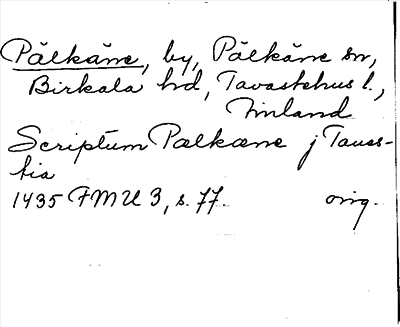 Pälkäne, by, Pälkäne sn,
Birkala hd, Tavastehus l.,
Finland
Scriptum Palkæne j Tauas-
tia
1435 FMU 3, s. 77. orig.